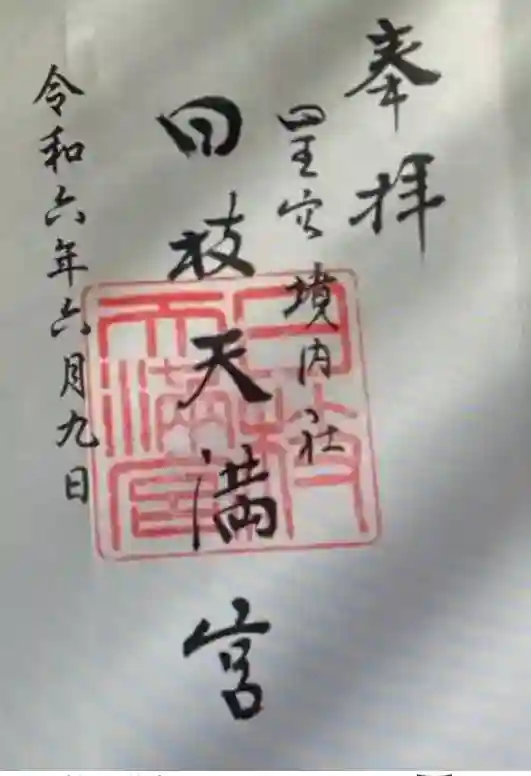 奉拝
星宮境内社
日枝天満宮
令和六年六月九日
日枝
天満宮